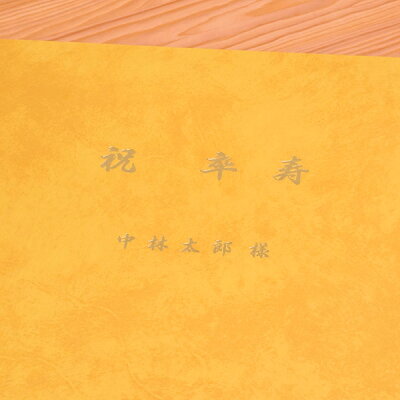 祝 卒 寿
中林太郎 様